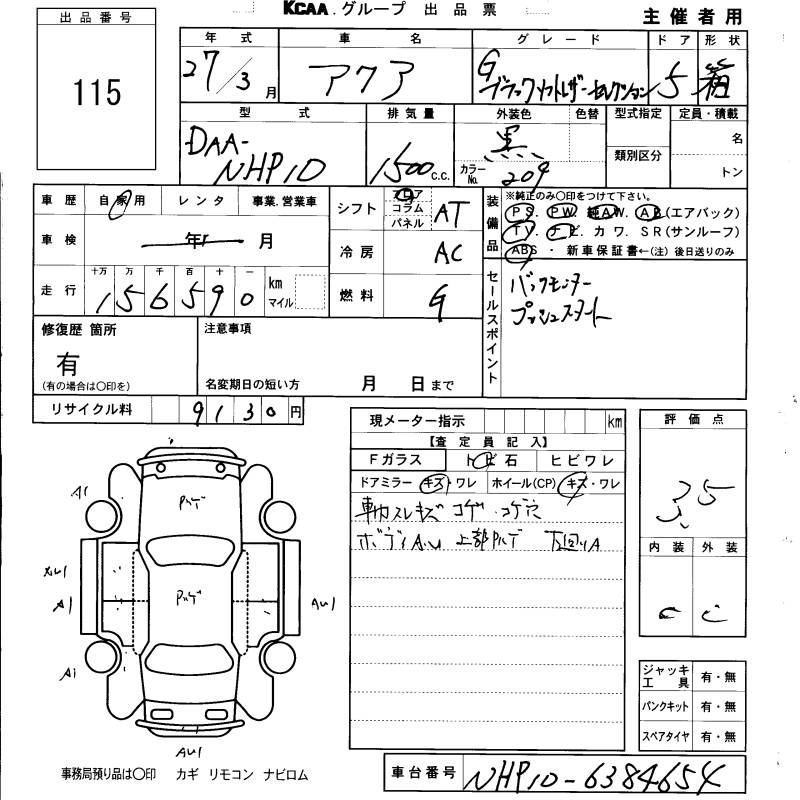 KCAA.グループ 出品票
主催者用
出品番号
115
年式 車名 グレード ドア 形状
27/3月 アクア G ブラックソフトレザーセレクション 5 箱
型式 排気量 外装色 色替 型式指定 定員・積載
DAA-NHP10 1500 C.C. 黒 カラーNo. 209 類別区分 名
トン
車歴 自家用 レンタ 事業.営業車
シフト フロア コラム パネル AT
装備品 ※純正のみ〇印をつけて下さい。
PS. PW. 純AW. AB(エアバック)
TV. ナビ. カワ. SR(サンルーフ)
ABS ・ 新車保証書←(注)後日送りのみ
車検 年 月
冷房 AC
走行 十万 万 千 百 十 一
156590 km マイル
燃料 G
セールスポイント
バックモニター
プッシュスタート
修復歴 箇所
有
(有の場合は〇印を)
注意事項
名変期日の短い方 月 日まで
リサイクル料 9130円
現メーター指示 km
【査定員記入】
Fガラス トビ石 ヒビワレ
ドアミラー キズ・ワレ ホイール(CP) キズ・ワレ
車内スレキズ コゲ・コゲ穴
ボディA.U 上部ハゲ 下回りA
評価点
3.5
内装 外装
C C
A1
ハゲ
AU1
A1
ハゲ
AU1
A1
AU1
ジャッキ工具 有・無
パンクキット 有・無
スペアタイヤ 有・無
事務局預り品は〇印 カギ リモコン ナビロム
車台番号 NHP10-6384654